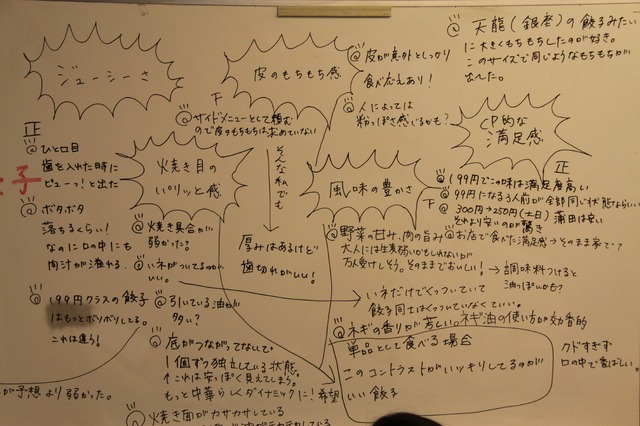 天龍(銀座)の餃子みたい
に大きくもちもちしたのが好き。
このサイズで同じようなもちもちが
出てた。
ジューシーさ
皮のもちもち感
皮が意外としっかり
食べ応えあり!
人によっては
粉っぽさ感じるかも?
CP的な
満足感
下
サイドメニューとして頼む
ので皮のもちもちは求めていない
そんな私でも
厚みはあるけど
歯切れがいい!
正
ひと口目
歯を入れた時に
ピューっ!と出た
子
ボタボタ
落ちるくらい!
なのに口の中にも
肉汁が溢れる.
199円クラスの餃子
はもっとボソボソしてる。
これは違う!
が予想より弱かった。
焼き目の
パリッと感
焼き具合が
弱かった?
いネがついてるのが
いい。
引いている油が
多い?
底がつながってないで。
1個ずつ独立している状態。
↑これは安っぽく見えてしまう。
もっと中華らしくダイナミックに!希望
焼き面がカサカサしている
風味の豊かさ
正
199円でこの味は満足度高い
下
99円になる3人前が全部同じ状態ならいい
300円→250円(土日)蒲田は安い
それより安いのが驚き
お店で食べた満足感→そのまま家で?
野菜の甘み、肉の旨み
大人には生姜弱いかもしれないが
万人受けしそう。そのままでおいしい!→調味料つけると
油っぽいかも?
いネだけでくっついていて
餃子同士はくっついていなくていい。
ネギの香りが芳しい。ネギ油の使い方が効果的
単品として食べる場合
このコントラストがハッキリしてるのが
いい餃子
クドすぎず
口の中で香ばしい。